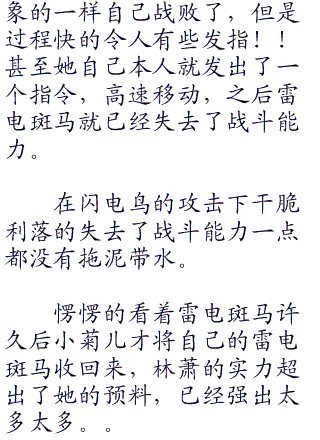 象的一样自己战败了，但是
过程快的令人有些发指！！
甚至她自己本人就发出了一
个指令，高速移动，之后雷
电斑马就已经失去了战斗能
力。
在闪电鸟的攻击下干脆
利落的失去了战斗能力一点
都没有拖泥带水。
愣愣的看着雷电斑马许
久后小菊儿才将自己的雷电
斑马收回来，林萧的实力超
出了她的预料，已经强出太
多太多。。